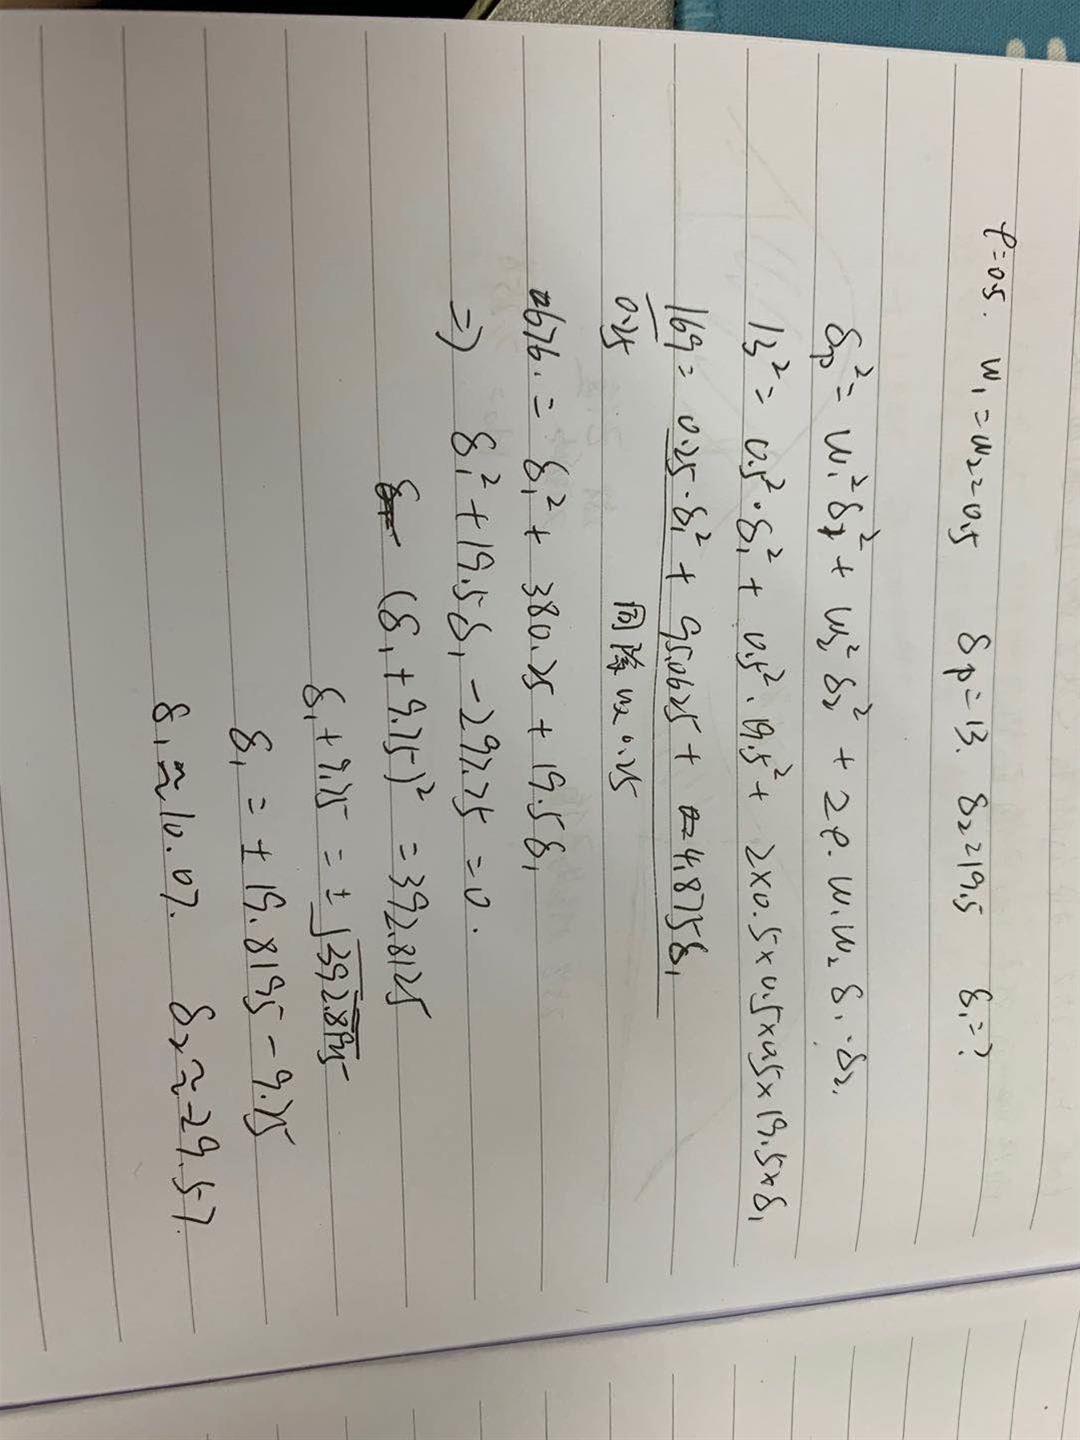 ρ=0.5. W₁=W₂=0.5 δp=13. δ₂=19.5 δ₁=?
δp² = W₁²δ₁² + W₂²δ₂² + 2ρ·W₁W₂δ₁·δ₂.
13² = 0.5²·δ₁² + 0.5²·19.5² + 2×0.5×0.5×0.5×19.5×δ₁
169 = 0.25·δ₁² + 95.0625 + 4.875δ₁
0.25 同除以0.25
676 = δ₁² + 380.25 + 19.5δ₁
⇒ δ₁² + 19.5δ₁ - 297.75 = 0.
(δ₁ + 9.75)² = 392.8125
δ₁ + 9.75 = ±√392.8125
δ₁ = ± 19.8195 - 9.75
δ₁ ≈ 10.07. δ₂ ≈ -29.57.